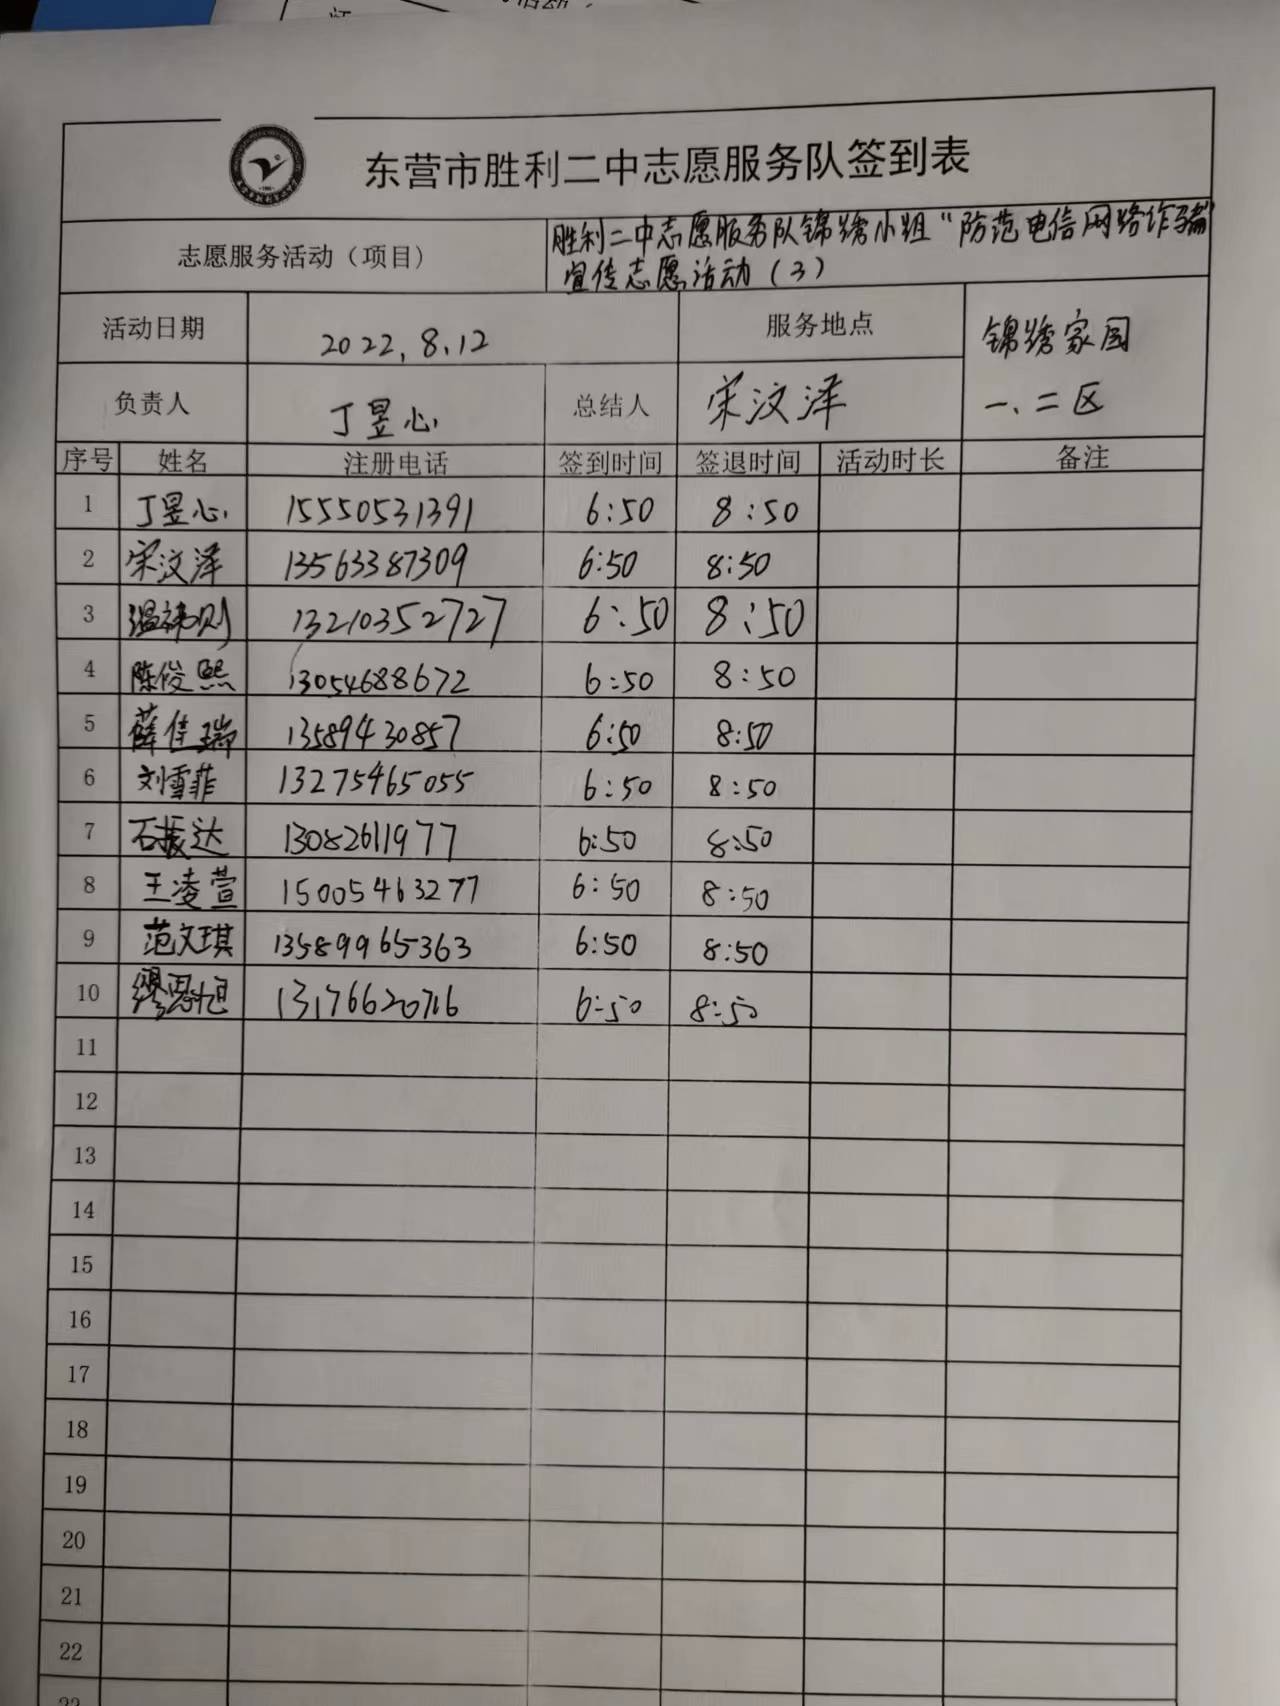 东营市胜利二中志愿服务队签到表
志愿服务活动（项目） 胜利二中志愿服务队锦绣小组“防范电信网络诈骗”
宣传志愿活动（3）
活动日期 2022.8.12 服务地点 锦绣家园
一、二区
负责人 丁昱心 总结人 宋汶泽
序号 姓名 注册电话 签到时间 签退时间 活动时长 备注
1 丁昱心 15550531391 6:50 8:50
2 宋汶泽 13563387309 6:50 8:50
3 温祎则 13210352727 6:50 8:50
4 陈俊熙 13054688672 6:50 8:50
5 薛佳瑞 13589430857 6:50 8:50
6 刘雪菲 13275465055 6:50 8:50
7 石振达 13082611977 6:50 8:50
8 王凌萱 15005463277 6:50 8:50
9 范文琪 13589965363 6:50 8:50
10 缪恩旭 13176620716 6:50 8:50
11
12
13
14
15
16
17
18
19
20
21
22
23